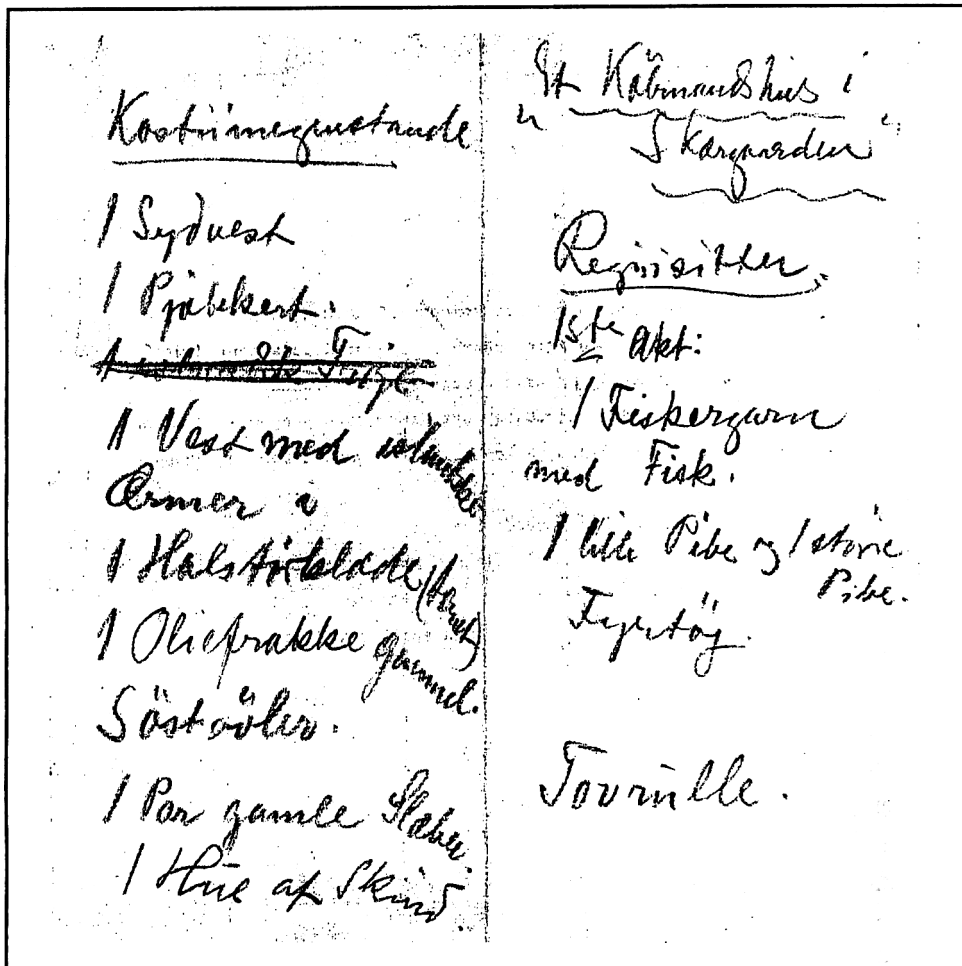 Kostümegenstande
1 Sydvest
1 Pjäkkert.
1 Vest med islandske
Ærmer i
1 Halstörklæde
1 Oliefrakke gammel.
Söstövler.
1 Par gamle
1 Hue af Skind.
"Et Köbmandshus i
Skærgaarden"
Requisitter.
1ste Akt:
1 Fiskergarn
med Fisk.
1 lille Pibe og 1 större
Pibe.
Fyrtöj.
Tovrulle.